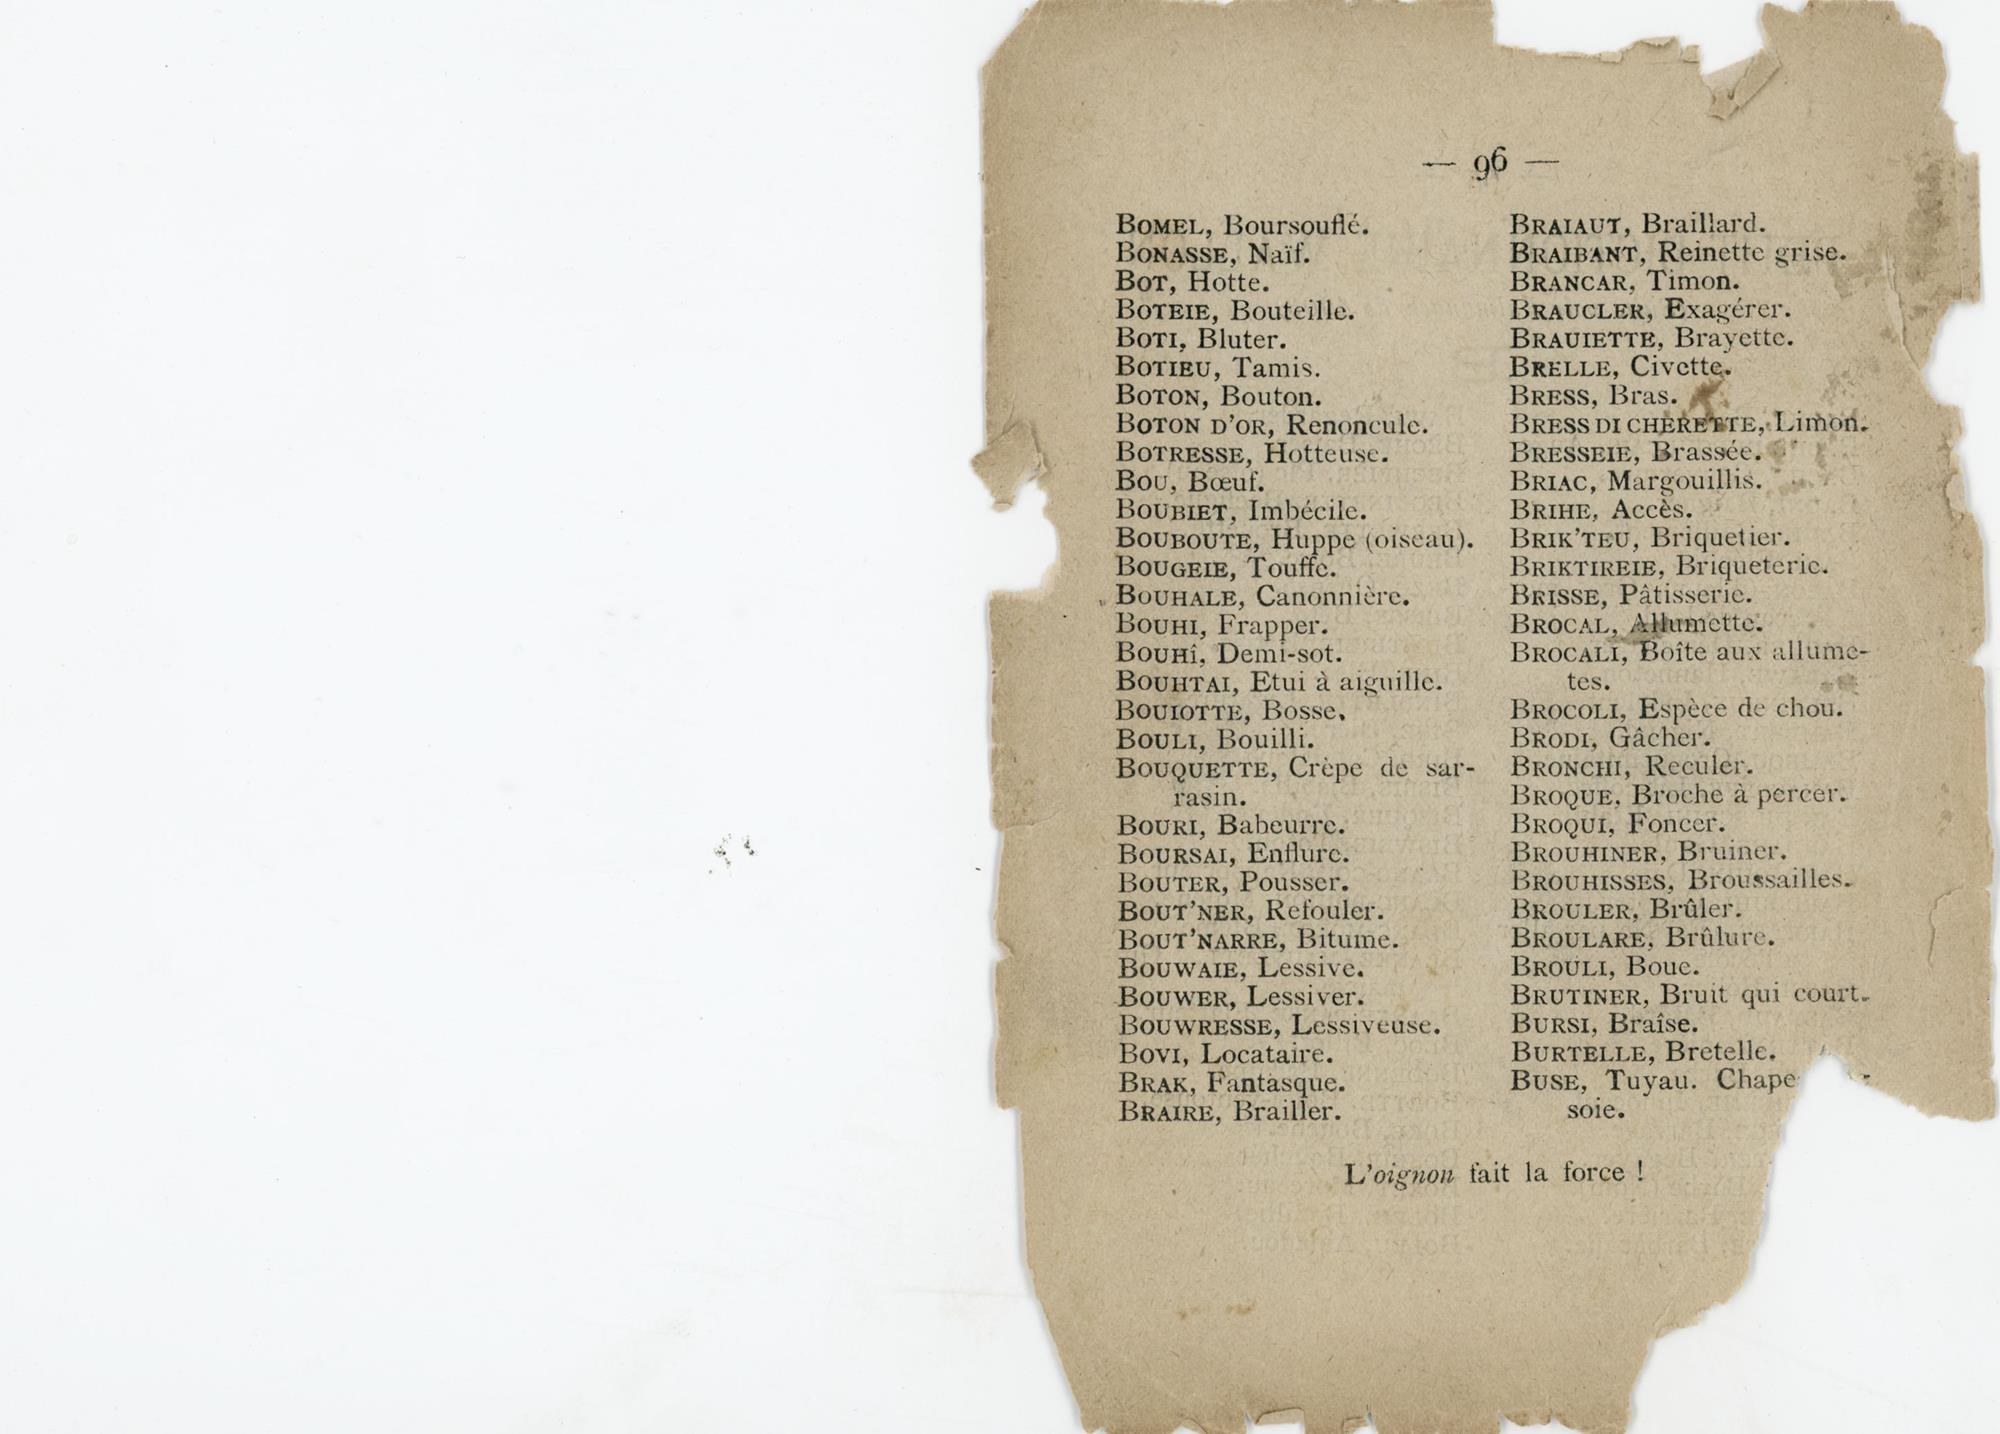 — 96 —
BOMEL, Boursouflé.
BONASSE, Naïf.
BOT, Hotte.
BOTEIE, Bouteille.
BOTI, Bluter.
BOTIEU, Tamis.
BOTON, Bouton.
BOTON D'OR, Renoncule.
BOTRESSE, Hotteuse.
BOU, Bœuf.
BOUBIET, Imbécile.
BOUBOUTE, Huppe (oiseau).
BOUGEIE, Touffe.
BOUHALE, Canonnière.
BOUHI, Frapper.
BOUHÎ, Demi-sot.
BOUHTAI, Etui à aiguille.
BOUIOTTE, Bosse.
BOULI, Bouilli.
BOUQUETTE, Crêpe de sar-
rasin.
BOURI, Babeurre.
BOURSAI, Enflure.
BOUTER, Pousser.
BOUT'NER, Refouler.
BOUT'NARRE, Bitume.
BOUWAIE, Lessive.
BOUWER, Lessiver.
BOUWRESSE, Lessiveuse.
BOVI, Locataire.
BRAK, Fantasque.
BRAIRE, Brailler.
BRAIAUT, Braillard.
BRAIBANT, Reinette grise.
BRANCAR, Timon.
BRAUCLER, Exagérer.
BRAUIETTE, Brayette.
BRELLE, Civette.
BRESS, Bras.
BRESS DI CHERETTE, Limon.
BRESSEIE, Brassée.
BRIAC, Margouillis.
BRIHE, Accès.
BRIK'TEU, Briquetier.
BRIKTIREIE, Briqueterie.
BRISSE, Pâtisserie.
BROCAL, Allumette.
BROCALI, Boîte aux allume-
tes.
BROCOLI, Espèce de chou.
BRODI, Gâcher.
BRONCHI, Reculer.
BROQUE, Broche à percer.
BROQUI, Foncer.
BROUHINER, Bruiner.
BROUHISSES, Broussailles.
BROULER, Brûler.
BROULARE, Brûlure.
BROULI, Boue.
BRUTINER, Bruit qui court.
BURSI, Braîse.
BURTELLE, Bretelle.
BUSE, Tuyau. Chape
soie.
L'oignon fait la force !